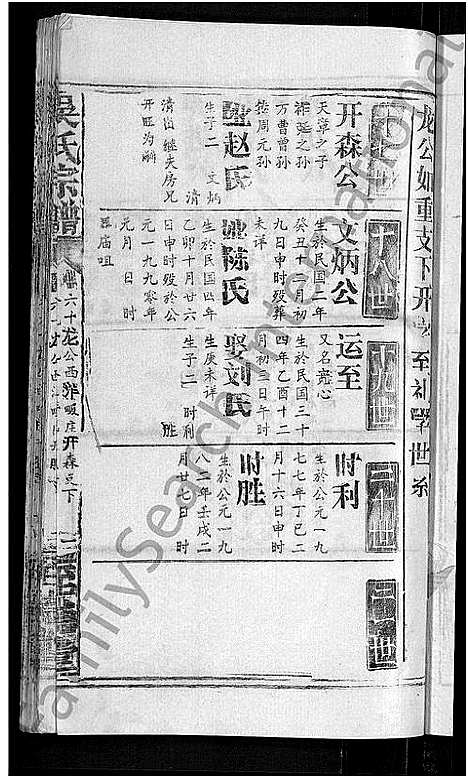 龙公如重支下开
至礼学世系
十七世
开森公
天章之子
稚延之孙
万曹曾孙
德周元孙
娶赵氏
生子二 文炳
清
清伯继夫房兄
开旺为嗣
十八世
文炳公
生於民国二年
癸丑十二月初
九日申时殁葬
未详
娶陈氏
生於民国四年
乙卯十月廿六
日申时殁於公
元一九九零年
元月 日 时
庙咀
十九世
运至
又名竞心
生於民国三十
四年乙酉十二
月初三日午时
娶刘氏
生庚未详
生子二 时利
胜
二十世
时利
生於公元一九
七七年丁巳二
月十六日申时
时胜
生於公元一九
八二年壬戌二
月廿七日 时
世
吴氏宗谱
六十龙公西
畈庄开森支下
FamilySearch International